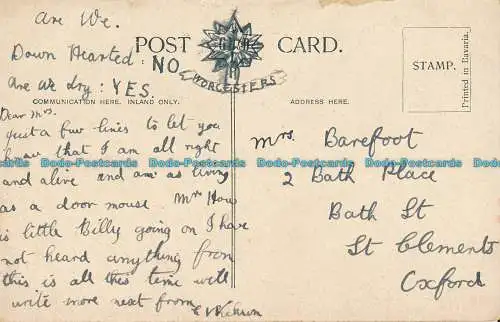 are We.
Down Hearted: NO
are we dry: YES.
POST CARD.
WORCESTERS
COMMUNICATION HERE. INLAND ONLY.
ADDRESS HERE.
STAMP.
Printed in Bavaria.
Dear Mrs.
Just a few lines to let you
know that I am all right
and alive and am as living
as a door mouse. Mrs How
is little Billy going on I have
not heard anything from
this is all this time will
write more next from
Mrs. Barefoot
2 Bath Place
Bath St
St Clements
Oxford
Dodo-Postcards Dodo-Postcards Dodo-Postcards Dodo-Postcards Dodo-Postcards